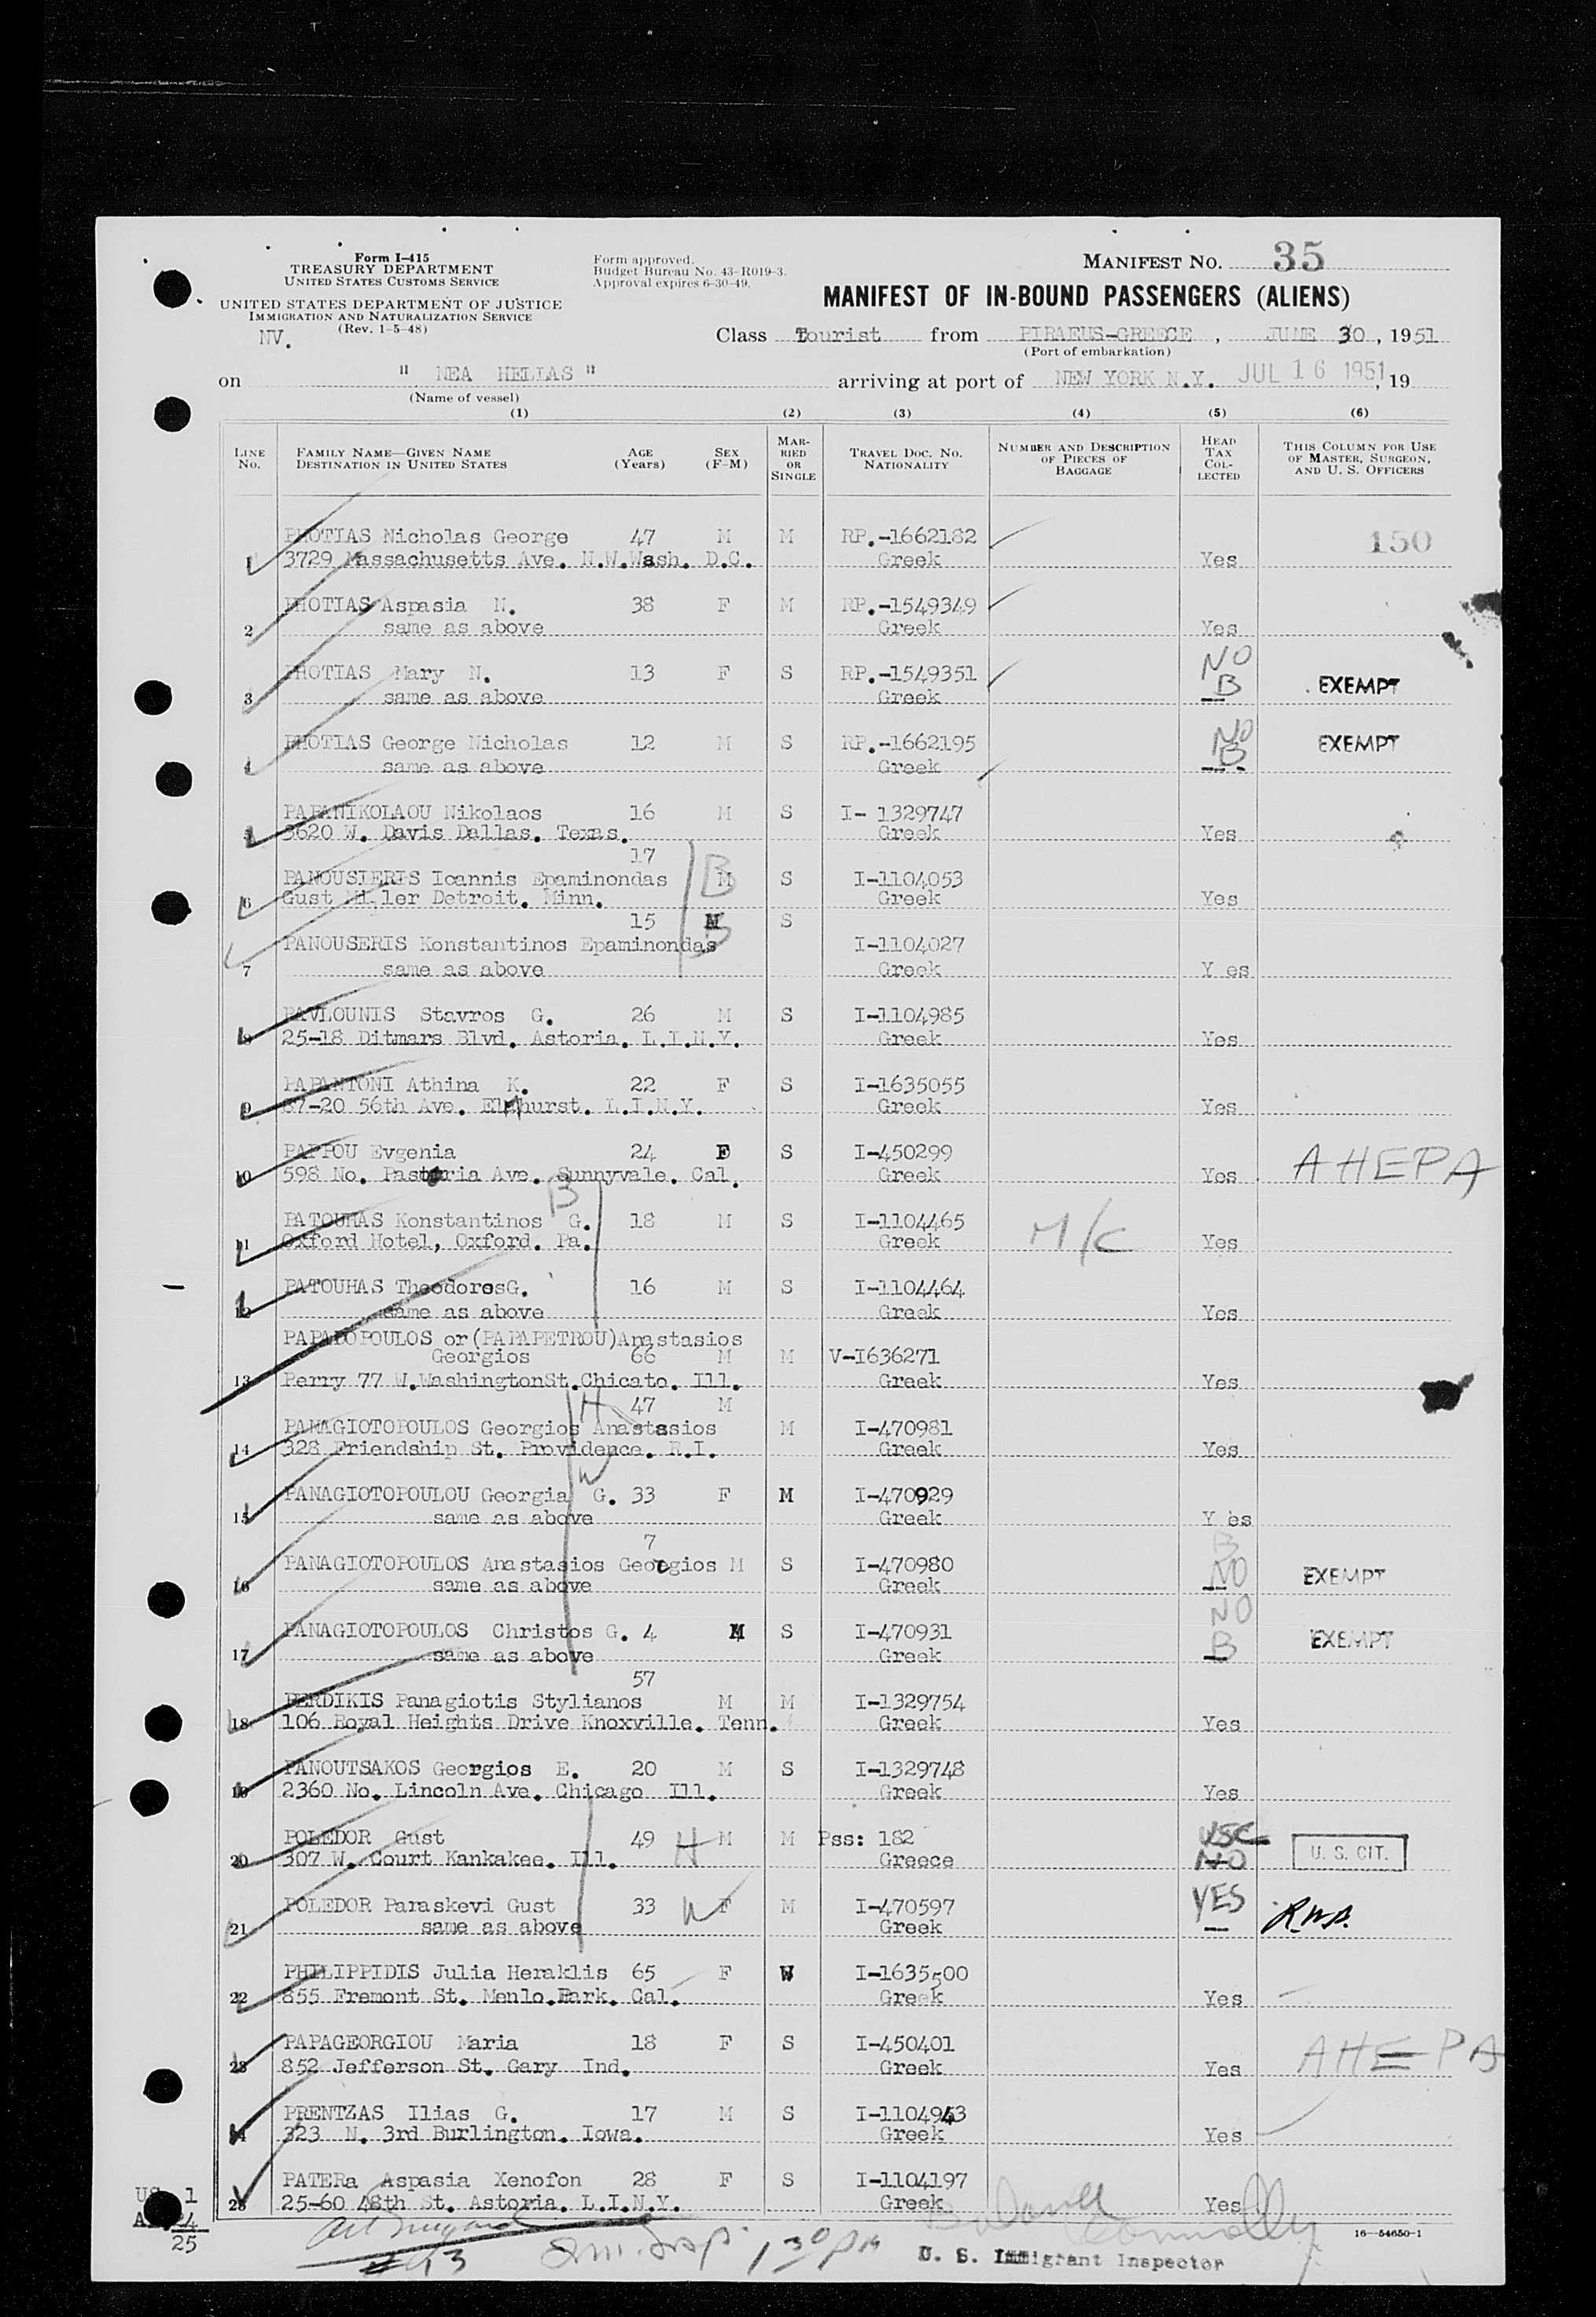 Form I-415
TREASURY DEPARTMENT
UNITED STATES CUSTOMS SERVICE
UNITED STATES DEPARTMENT OF JUSTICE
IMMIGRATION AND NATURALIZATION SERVICE
(Rev. 1-5-48)
NV.
Form approved.
Budget Bureau No. 43-R019-3.
Approval expires 6-30-49.
MANIFEST NO. 35
MANIFEST OF IN-BOUND PASSENGERS (ALIENS)
Class Tourist from PIRAEUS-GREECE, JUNE 30, 1951
(Port of embarkation)
on " NEA HELLAS " arriving at port of NEW YORK N.Y. JUL 16 1951, 19
(Name of vessel)
(1) (2) (3) (4) (5) (6)
LINE No. FAMILY NAME—GIVEN NAME DESTINATION IN UNITED STATES AGE (Years) SEX (F-M) MARRIED OR SINGLE TRAVEL DOC. NO. NATIONALITY NUMBER AND DESCRIPTION OF PIECES OF BAGGAGE HEAD TAX COLLECTED THIS COLUMN FOR USE OF MASTER, SURGEON, AND U. S. OFFICERS
PHOTIAS Nicholas George 47 M M RP.-1662182 150
1 3729 Massachusetts Ave. N.W.Wash. D.C. Greek Yes
PHOTIAS Aspasia N. 38 F M RP.-1549349
2 same as above Greek Yes
PHOTIAS Mary N. 13 F S RP.-1549351 NO
3 same as above Greek B EXEMPT
PHOTIAS George Nicholas 12 M S RP.-1662195 NO EXEMPT
4 same as above Greek B
PAPANIKOLAOU Nikolaos 16 M S I- 1329747
5 3620 W. Davis Dallas. Texas. Greek Yes
17
PANOUSIERIS Ioannis Epaminondas M B S I-1104053
6 Gust Miller Detroit. Minn. Greek Yes
15 M S
PANOUSERIS Konstantinos Epaminondas B I-1104027
7 same as above Greek Y es
PAVLOUNIS Stavros G. 26 M S I-1104985
8 25-18 Ditmars Blvd. Astoria. L.I.N.Y. Greek Yes
PAPANTONI Athina K. 22 F S I-1635055
9 87-20 56th Ave. Elmhurst. L.I.N.Y. Greek Yes
PAPPOU Evgenia 24 F S I-450299
10 598 No. Pastoria Ave. Sunnyvale. Cal. Greek Yes AHEPA
B
PATOUHAS Konstantinos G. 18 M S I-1104465
11 Oxford Hotel, Oxford. Pa. Greek M/C Yes
PATOUHAS TheodorosG. 16 M S I-1104464
12 same as above Greek Yes
PAPADOPOULOS or(PAPAPETROU)Anastasios
Georgios 66 M M V-I636271
13 Perry 77 W.WashingtonSt.Chicato. Ill. Greek Yes
H 47 M
PANAGIOTOPOULOS Georgios Anastasios M I-470981
14 328 Friendship St. Providence. R.I. Greek Yes
W
PANAGIOTOPOULOU Georgia G. 33 F M I-470929
15 same as above Greek Y es
7 B
PANAGIOTOPOULOS Anastasios Georgios M S I-470980
16 same as above Greek NO EXEMPT
NO
PANAGIOTOPOULOS Christos G. 4 M S I-470931
17 same as above Greek B EXEMPT
57
PERDIKIS Panagiotis Stylianos M M I-1329754
18 106 Royal Heights Drive Knoxville. Tenn. Greek Yes
PANOUTSAKOS Georgios E. 20 M S I-1329748
19 2360 No. Lincoln Ave. Chicago Ill. Greek Yes
POLEDOR Gust 49 H M M Pss: 182 USC
20 307 W. Court Kankakee. Ill. Greece NO U. S. CIT.
POLEDOR Paraskevi Gust 33 W F M I-470597 YES
21 same as above Greek
PHILIPPIDIS Julia Heraklis 65 F W I-1635500
22 855 Fremont St. Menlo.Park. Cal. Greek Yes
PAPAGEORGIOU Maria 18 F S I-450401
23 852 Jefferson St. Gary Ind. Greek Yes AHEPA
PRENTZAS Ilias G. 17 M S I-1104943
24 323 N. 3rd Burlington. Iowa. Greek Yes
PATERa Aspasia Xenofon 28 F S I-1104197
25 25-60 48th St. Astoria. L.I.N.Y. Greek Yes
US 1
24
25
1 30 PM
Connolly
U. S. Immigrant Inspector
16—54650-1